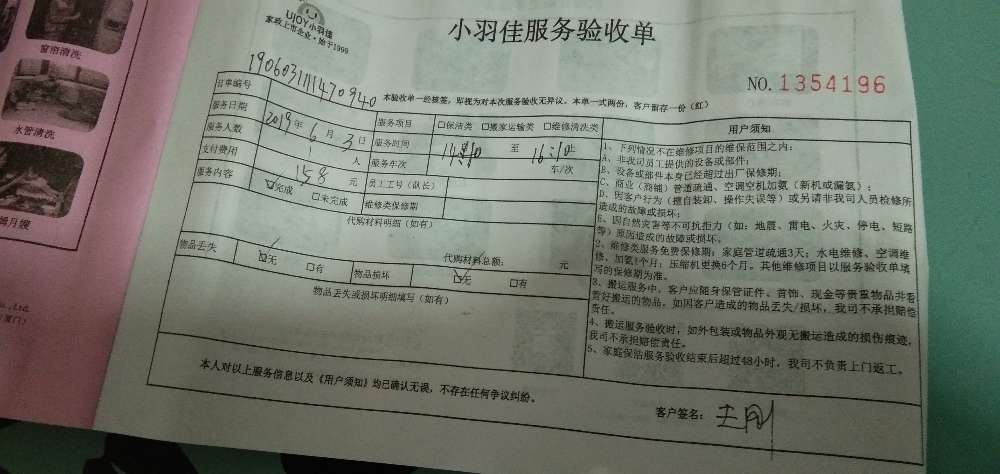 窗帘清洗
水管清洗
UJOY小羽佳
家政上市企业·始于1999
小羽佳服务验收单
190603111470940
NO.1354196
本验收单一经核签，即视为对本次服务验收无异议。本单一式两份，客户留存一份（红）
服务日期 2019年6月3日
服务项目 □保洁类 □搬家运输类 □维修清洗类
服务人数 1 人
服务时间 至 16:10止
支付费用 158 元
服务车次 车/次
服务内容 ☑完成 □未完成
员工工号（队长）
维修类保修期
代购材料明细（如有）
代购材料总额： 元
物品丢失 ☑无 □有
物品损坏 ☑无 □有
物品丢失或损坏明细填写（如有）
用户须知
1、下列情况不在维保项目的维保范围之内：
A、非我司员工提供的设备或部件；
B、设备或部件本身已经超过出厂保修期；
C、商业（商铺）管道疏通、空调空机加氨（新机或漏氨）；
D、因客户行为（擅自装卸、操作失误等）或另请非我司人员检修所
造成的故障或损坏；
E、因自然灾害等不可抗拒力（如：地震、雷电、火灾、停电、短路
等）原因造成的故障或损坏。
2、维修类服务免费保修期：家庭管道疏通3天；水电维修、空调维
修、加氨1个月；压缩机更换6个月。其他维修项目以服务验收单填
写的保修期为准。
3、搬运服务中，客户应随身保管证件、首饰、现金等贵重物品并看
管好搬运的物品，如因客户造成的物品丢失/损坏，我司不承担赔偿
责任。
4、搬运服务验收时，如外包装或物品外观无搬运造成的损伤痕迹，
我司不承担赔偿责任。
5、家庭保洁服务验收结束后超过48小时，我司不负责上门返工。
本人对以上服务信息以及《用户须知》均已确认无误，不存在任何争议纠纷。
客户签名：王刚